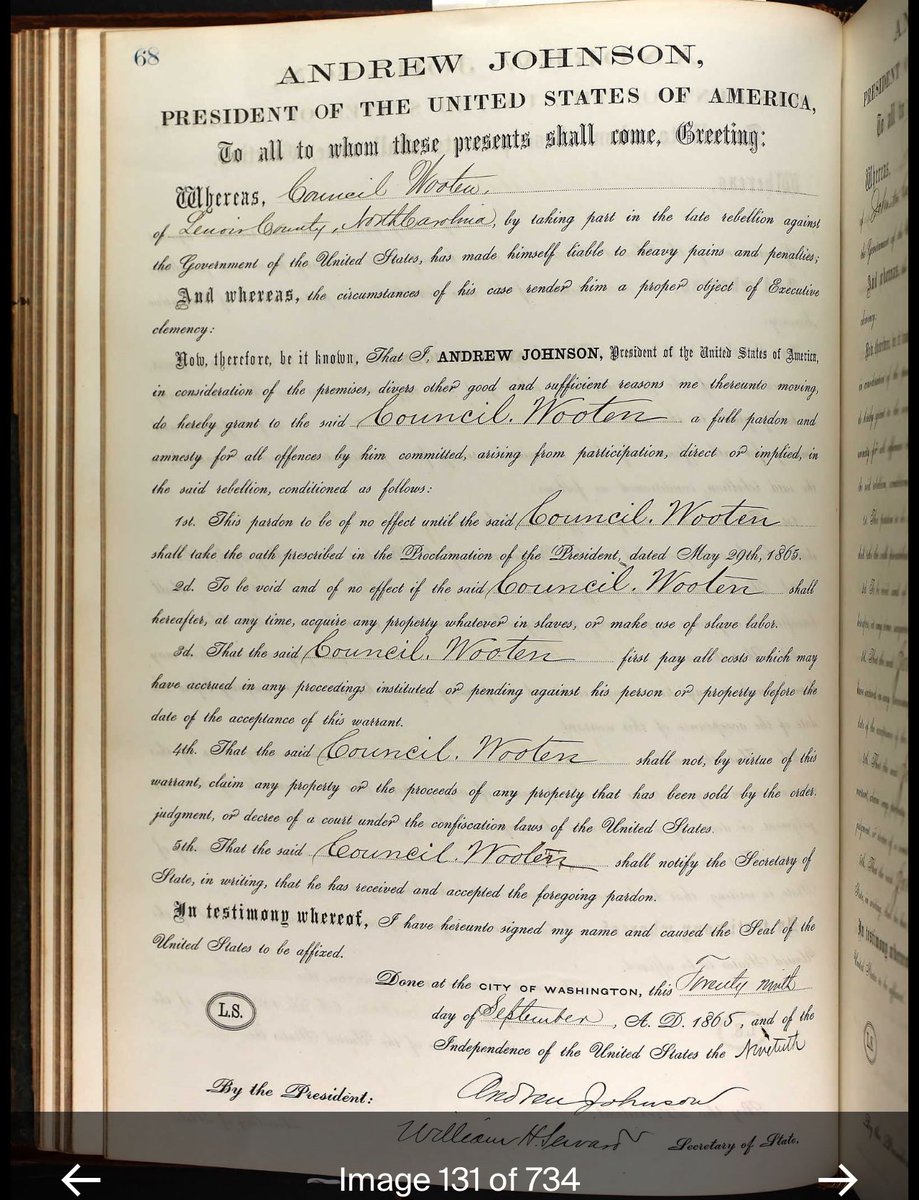 68
ANDREW JOHNSON,
PRESIDENT OF THE UNITED STATES OF AMERICA,
To all to whom these presents shall come, Greeting:
Whereas, Council Wooten,
of Lenoir County, North Carolina, by taking part in the late rebellion against
the Government of the United States, has made himself liable to heavy pains and penalties;
And whereas, the circumstances of his case render him a proper object of Executive
clemency:
Now, therefore, be it known, That I, ANDREW JOHNSON, President of the United States of America,
in consideration of the premises, divers other good and sufficient reasons me thereunto moving,
do hereby grant to the said Council. Wooten a full pardon and
amnesty for all offences by him committed, arising from participation, direct or implied, in
the said rebellion, conditioned as follows:
1st. This pardon to be of no effect until the said Council. Wooten
shall take the oath prescribed in the Proclamation of the President, dated May 29th, 1865.
2d. To be void and of no effect if the said Council. Wooten shall
hereafter, at any time, acquire any property whatever in slaves, or make use of slave labor.
3d. That the said Council. Wooten first pay all costs which may
have accrued in any proceedings instituted or pending against his person or property before the
date of the acceptance of this warrant.
4th. That the said Council. Wooten shall not, by virtue of this
warrant, claim any property or the proceeds of any property that has been sold by the order,
judgment, or decree of a court under the confiscation laws of the United States.
5th. That the said Council. Wooten shall notify the Secretary of
State, in writing, that he has received and accepted the foregoing pardon.
In testimony whereof, I have hereunto signed my name and caused the Seal of the
United States to be affixed.
Done at the CITY OF WASHINGTON, this Twenty ninth
day of September, A. D. 1865, and of the
L.S.
Independence of the United States the Ninetieth
By the President: Andrew Johnson
William H Seward Secretary of State.
Image 131 of 734